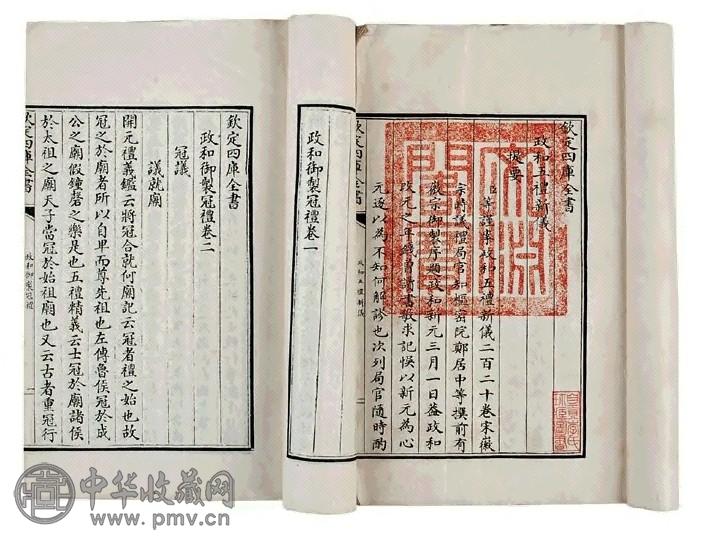 欽定四庫全書
政和五禮新儀
提要
臣等謹案政和五禮新儀二百二十卷宋徽
宗時議禮局官知樞密院鄭居中等撰前有
徽宗御製序題政和新元三月一日蓋政和
改元之年錢曾讀書敏求記悞以新元為心
元遂以為不如何解謬也次列局官隨時酌
欽定四庫全書
政和五禮新儀
文淵閣寶
政和御製冠禮卷一
欽定四庫全書
政和御製冠禮卷二
冠議
議就廟
開元禮義鑑云將冠合就何廟記云冠者禮之始也故
冠之於廟者所以自卑而尊先祖也左傳魯侯冠於成
公之廟假鐘磬之樂是也五禮精義云士冠於廟諸侯
於太祖之廟天子當冠於始祖廟也又云古者重冠行
欽定四庫全書
政和御製冠禮
中华收藏网
www.pmv.cn